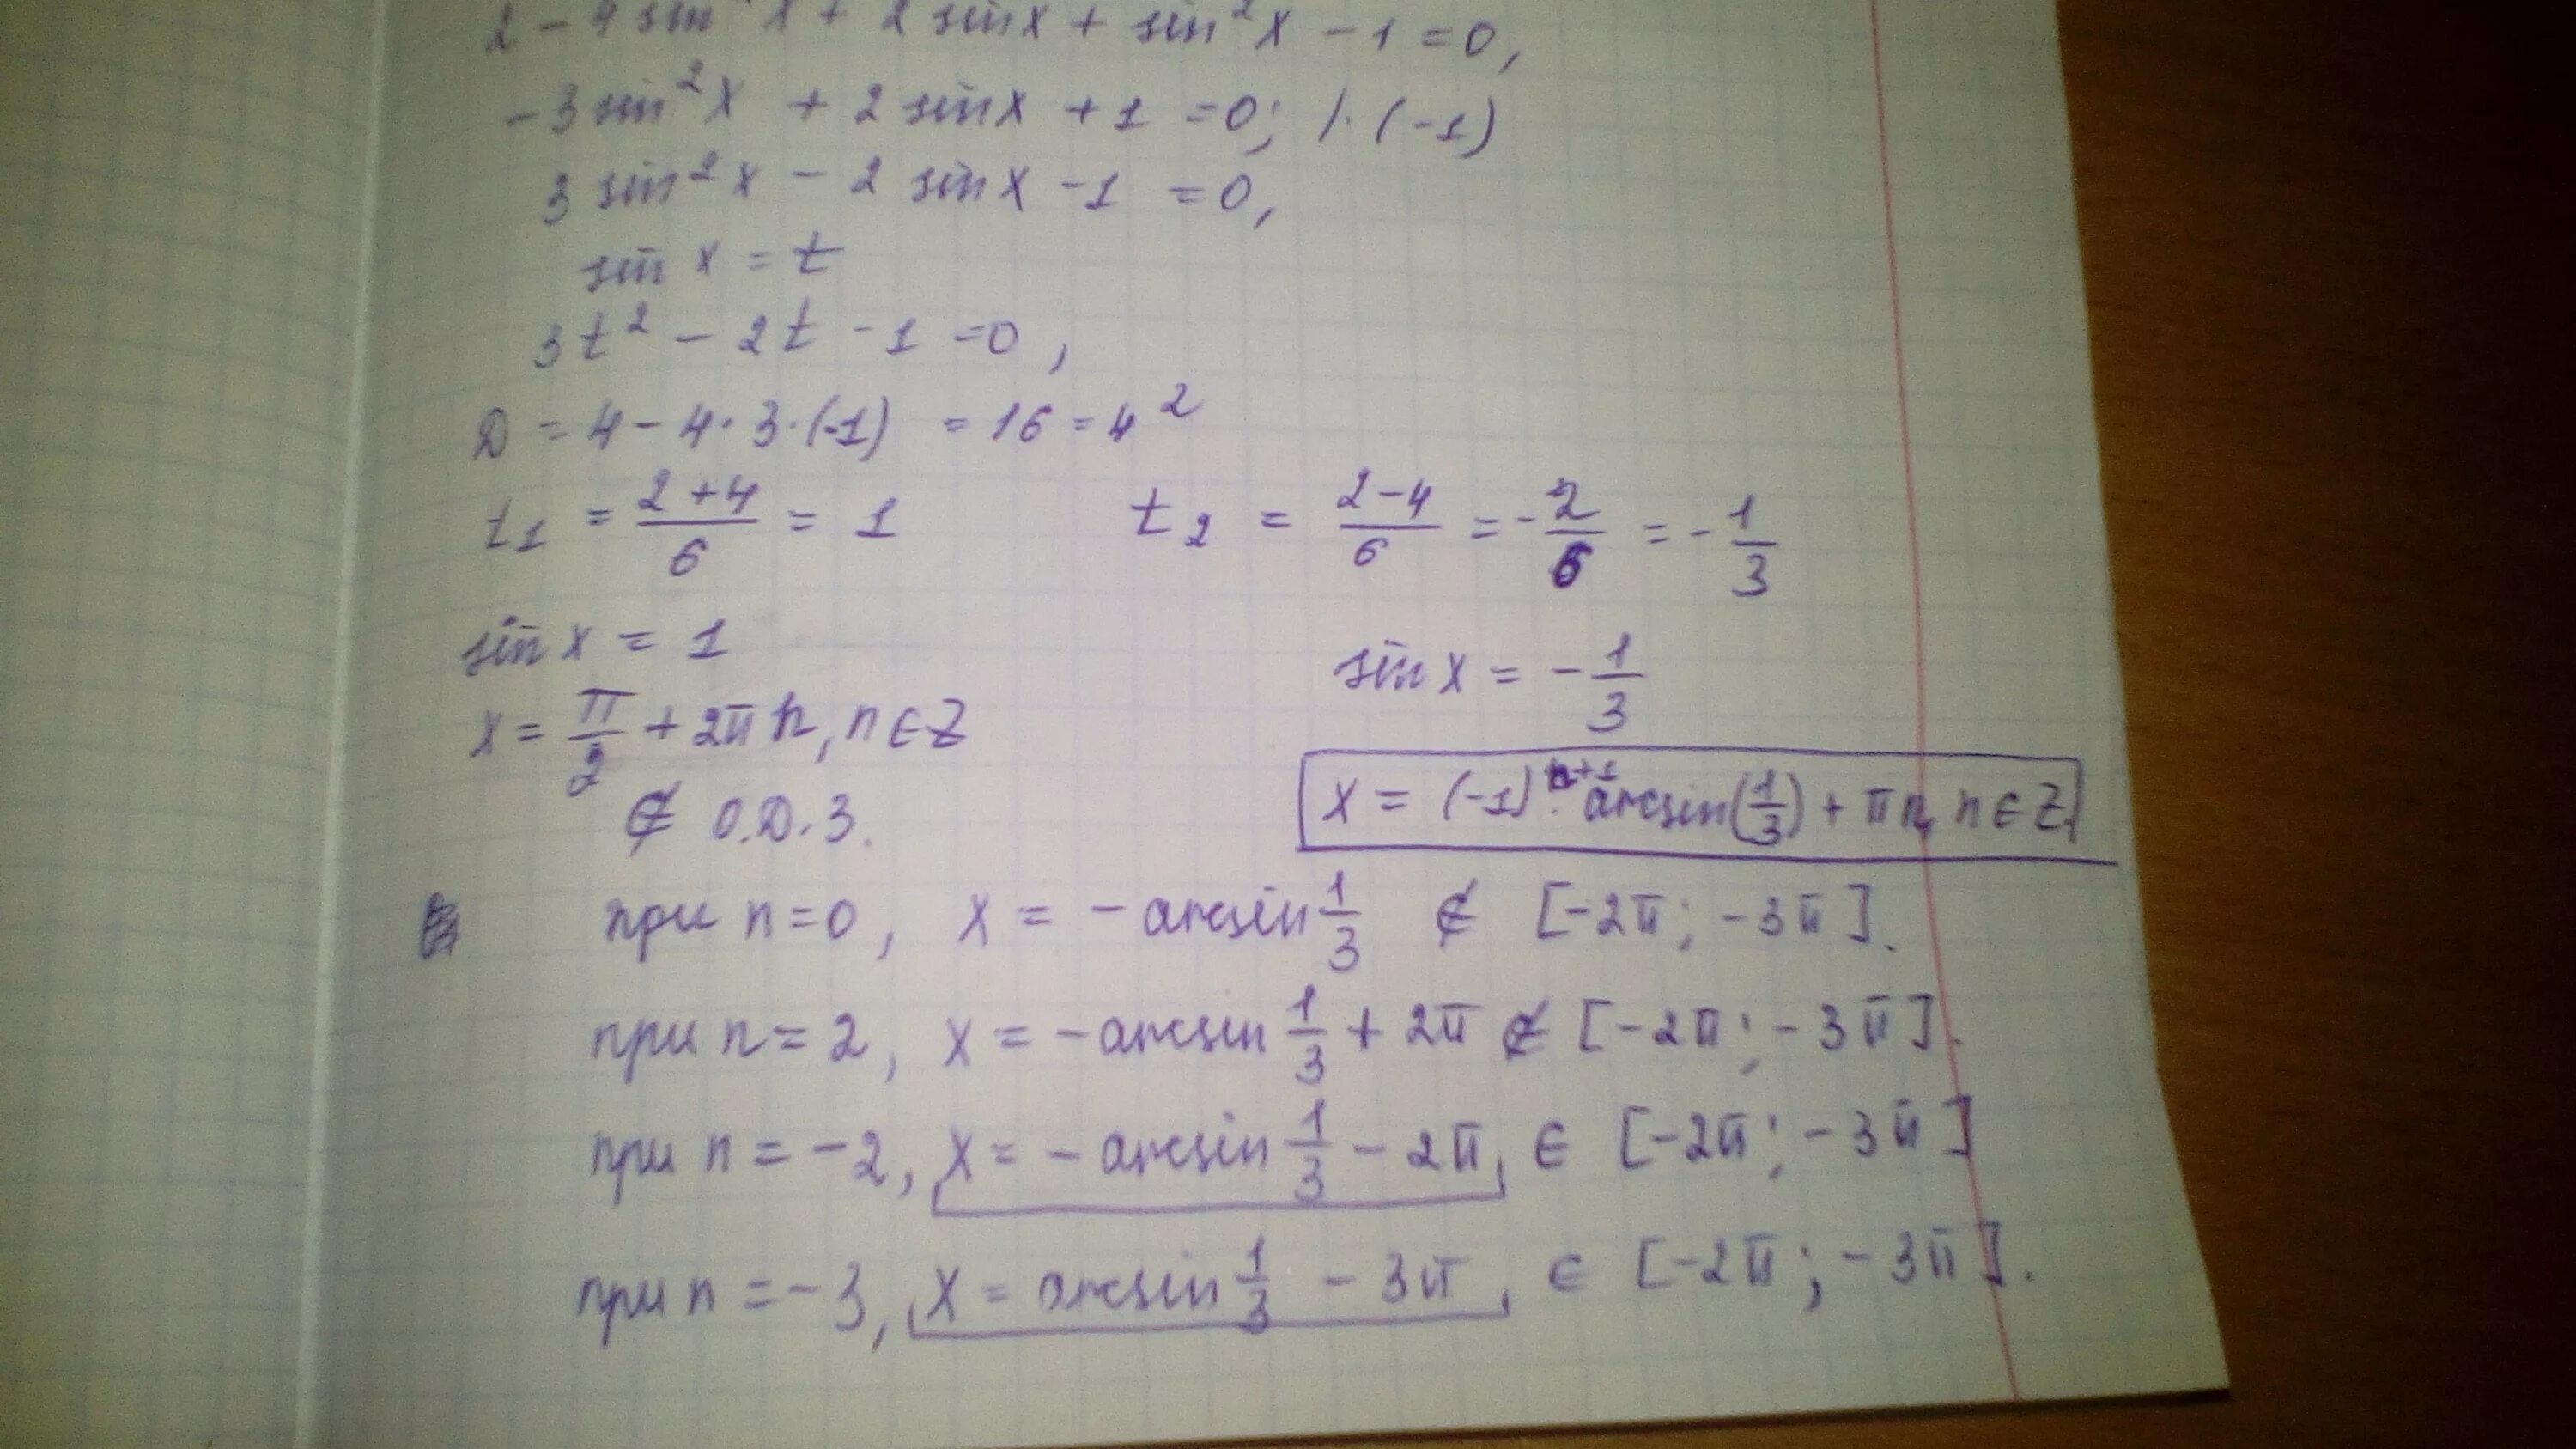 2 - 4 sin² x + 2 sin x + sin² x - 1 = 0,
-3 sin² x + 2 sin x + 1 = 0; | · (-1)
3 sin² x - 2 sin x - 1 = 0,
sin x = t
3t² - 2t - 1 = 0,
D = 4 - 4 · 3 · (-1) = 16 = 4²
t₁ = (2+4)/6 = 1 t₂ = (2-4)/6 = -2/6 = -1/3
sin x = 1 sin x = -1/3
x = π/2 + 2πn, n ∈ Z
∉ О.Д.З. x = (-1)ⁿ⁺¹ · arcsin(1/3) + πn, n ∈ Z
при n = 0, x = - arcsin 1/3 ∉ [-2π; -3π].
при n = 2, x = - arcsin 1/3 + 2π ∉ [-2π; -3π].
при n = -2, x = - arcsin 1/3 - 2π, ∈ [-2π; -3π]
при n = -3, x = arcsin 1/3 - 3π, ∈ [-2π; -3π].